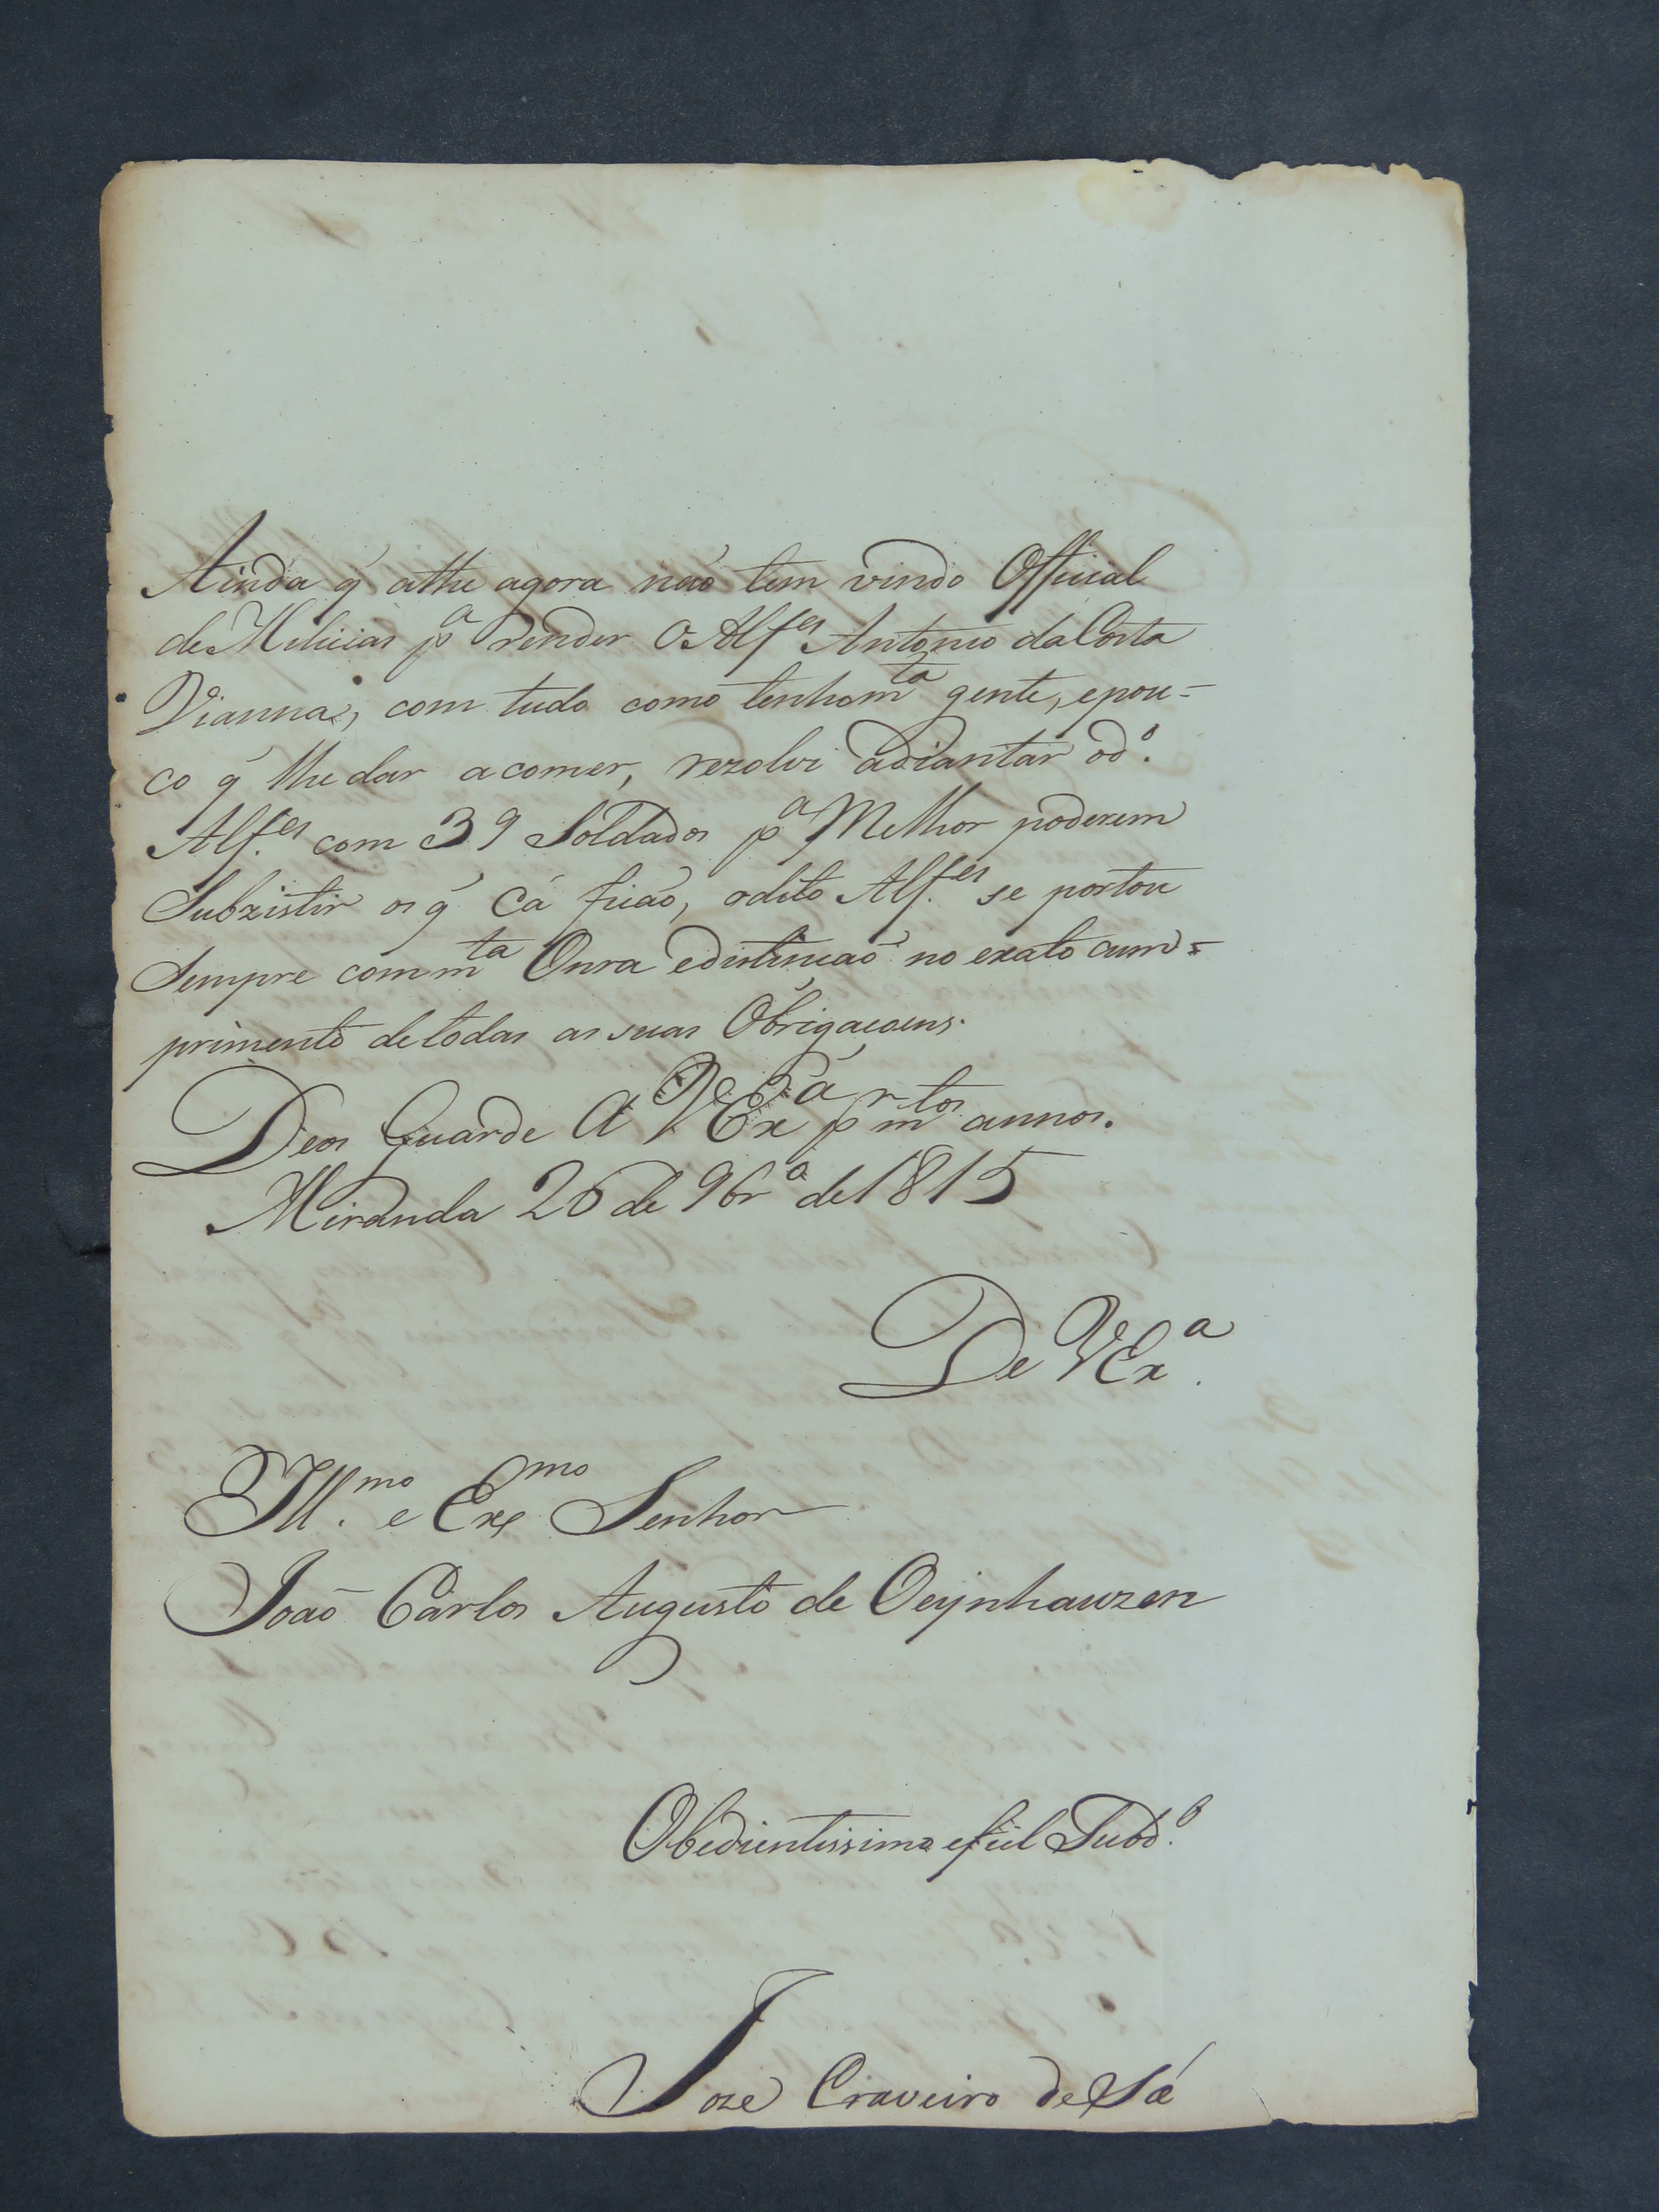 Ainda q̃ athe agora não tem vindo Official
de Milicias pª render O Alfes Antonio da Costa
Vianna, com tudo como tenho mta gente, e pou-
co q̃ lhe dar a comer, rezolvi adiantar o do.
Alf.es com 39 Soldados pª Melhor poderem
Subzistir os q̃ Cá ficão, o dito Alf.es se portou
Sempre com mta Onra e distincaõ no exato cum=
primento de todas as suas Obrigacoens.
Deos Guarde A VExª pr mtos annos.
Miranda 26 de 9brº de 1815
De VExª.
Ill.mo e Exmo Senhor
Joaõ Carlos Augusto de Oeynhauzen
Obedientissimo e fiel Subdº.
Joze Craveiro de Sá